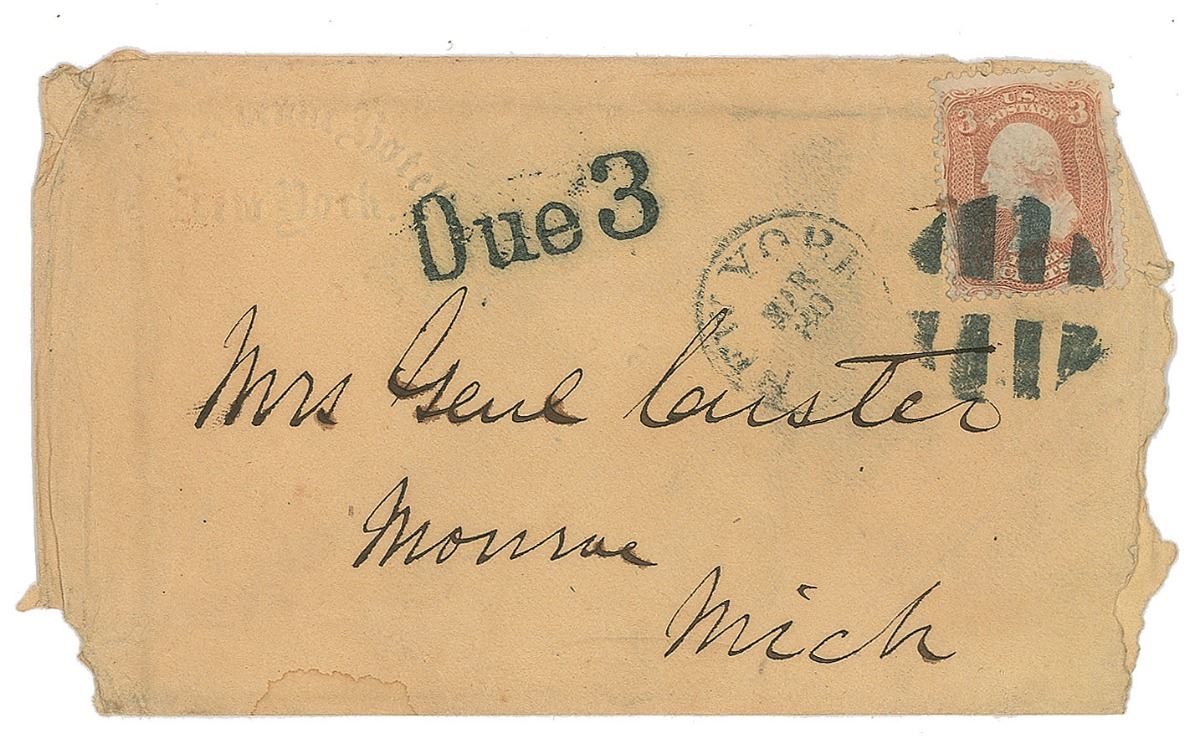 New York.
U.S.
POSTAGE
3 3
Due 3
NEW YORK
MAR
20
CENTS
Mrs Genl Custer
Monroe
Mich